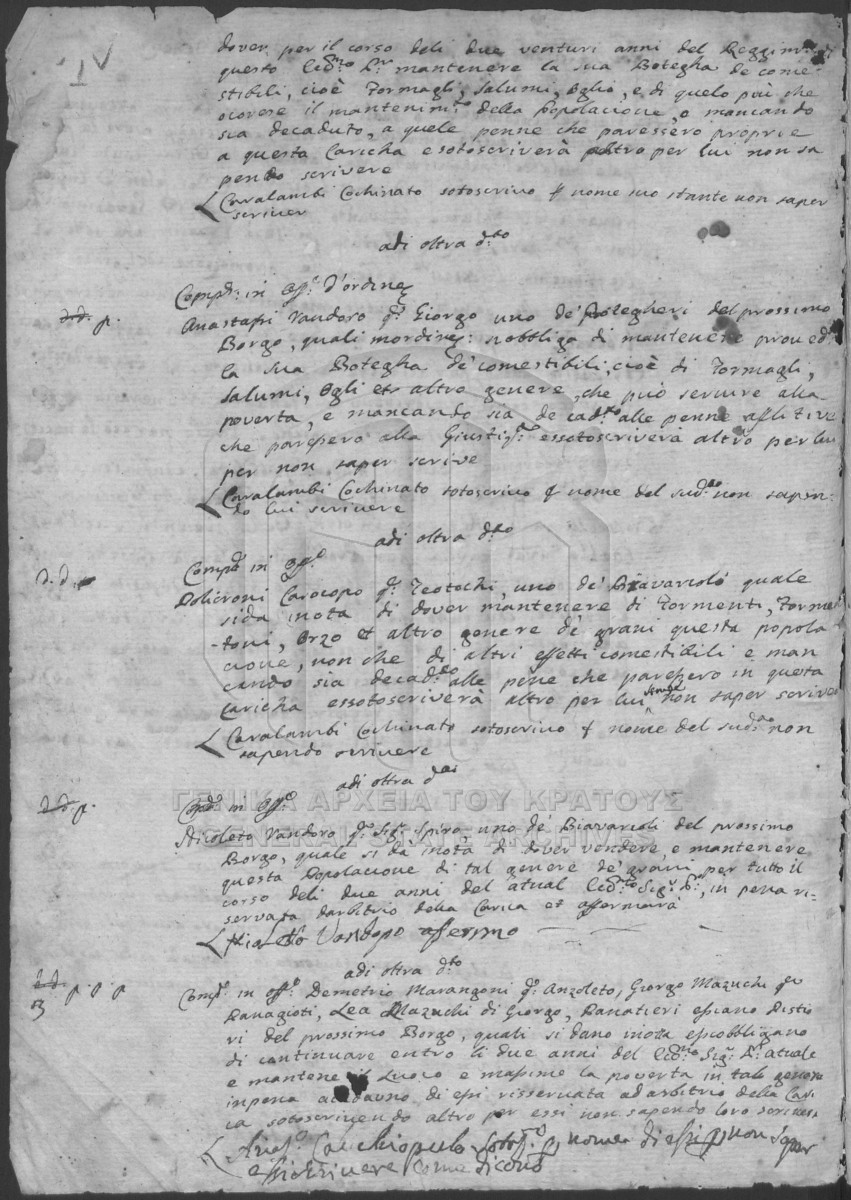 dover per il corso deli due venturi anni del Reggim.to di
questo mantenere la sua Botegha de come-
stibili, cioè Formagli, Salumi, Oglio, e di quelo più che
ocorese il mantenim.to della Popolacione, e mancando
sia decaduto, a quele penne che paressero proprie
a questa Caricha e sotoscriverà altro per lui non sa
pendo scrivere
Caralambi Cochinato sotoscrivo nome suo stante non saper
scriver
adi oltra d.to
Comp. in off.o d'ordine
d.d. p.
Anastasi Vandoro q.m Giorgo uno de Botegheri del prossimo
Borgo, quali obbliga di mantenere proved.
la sua Botegha de comestibili, cioè di Formagli,
Salumi, Ogli et altro genere, che può servire alla
poverta, e mancando sia decad.to alle penne aflitive
che paressero alla essotoscriverà altro per lui
per non saper scrive
Caralambi Cochinato sotoscrivo nome del sud.to non sapen-
do lui scrivere
adi oltra d.to
d.d.
Comp. in off.o
Policroni q.m Teotochi, uno de Biavarioli quale
si da inota di dover mantenere di Formenti, Forme
toni, Orzo et altro genere de grani questa popola
cione, non che di altri effetti comestibili e man
cando sia decad.to alle pene che paressero in questa
Caricha essotoscriverà altro per lui non saper scriver
Caralambi Cochinato sotoscrivo nome del sud.to non
sapendo scrivere
adi oltra
d.d. p.
in off.o
ΓΕΝΙΚΑ ΑΡΧΕΙΑ ΤΟΥ ΚΡΑΤΟΥΣ
GENERAL STATE ARCHIVES
Nicoleto Vandoro q.m Sig.r Spiro, uno de Biavarioli del prossimo
Borgo, quale si da inota di dover vendere e mantenere
questa Popolacione di tal genere de grani per tutto il
corso deli due anni del atual Sig.r in pena ri-
servata darbitrio della Carica et affermarà
Vandoro affermo
adi oltra d.to
d.d. p. p. p
3
Comp. in off.o Demetrio Marangoni q.m Anzoleto, Giorgo Mazuchi q.m
Panagioti, Lea Mazuchi di Giorgo, Panatieri
del prossimo Borgo, quali si dano inota essobbligano
di continuare entro li due anni del Sig.r atuale
e mantene il Luoco e masime la poverta in tale genere
inpena acadauno di essi risservata adarbitrio della Cari
sotoscrivendo altro per essi non sapendo loro scrivere
nome di essi non saper
scrivere come dicono